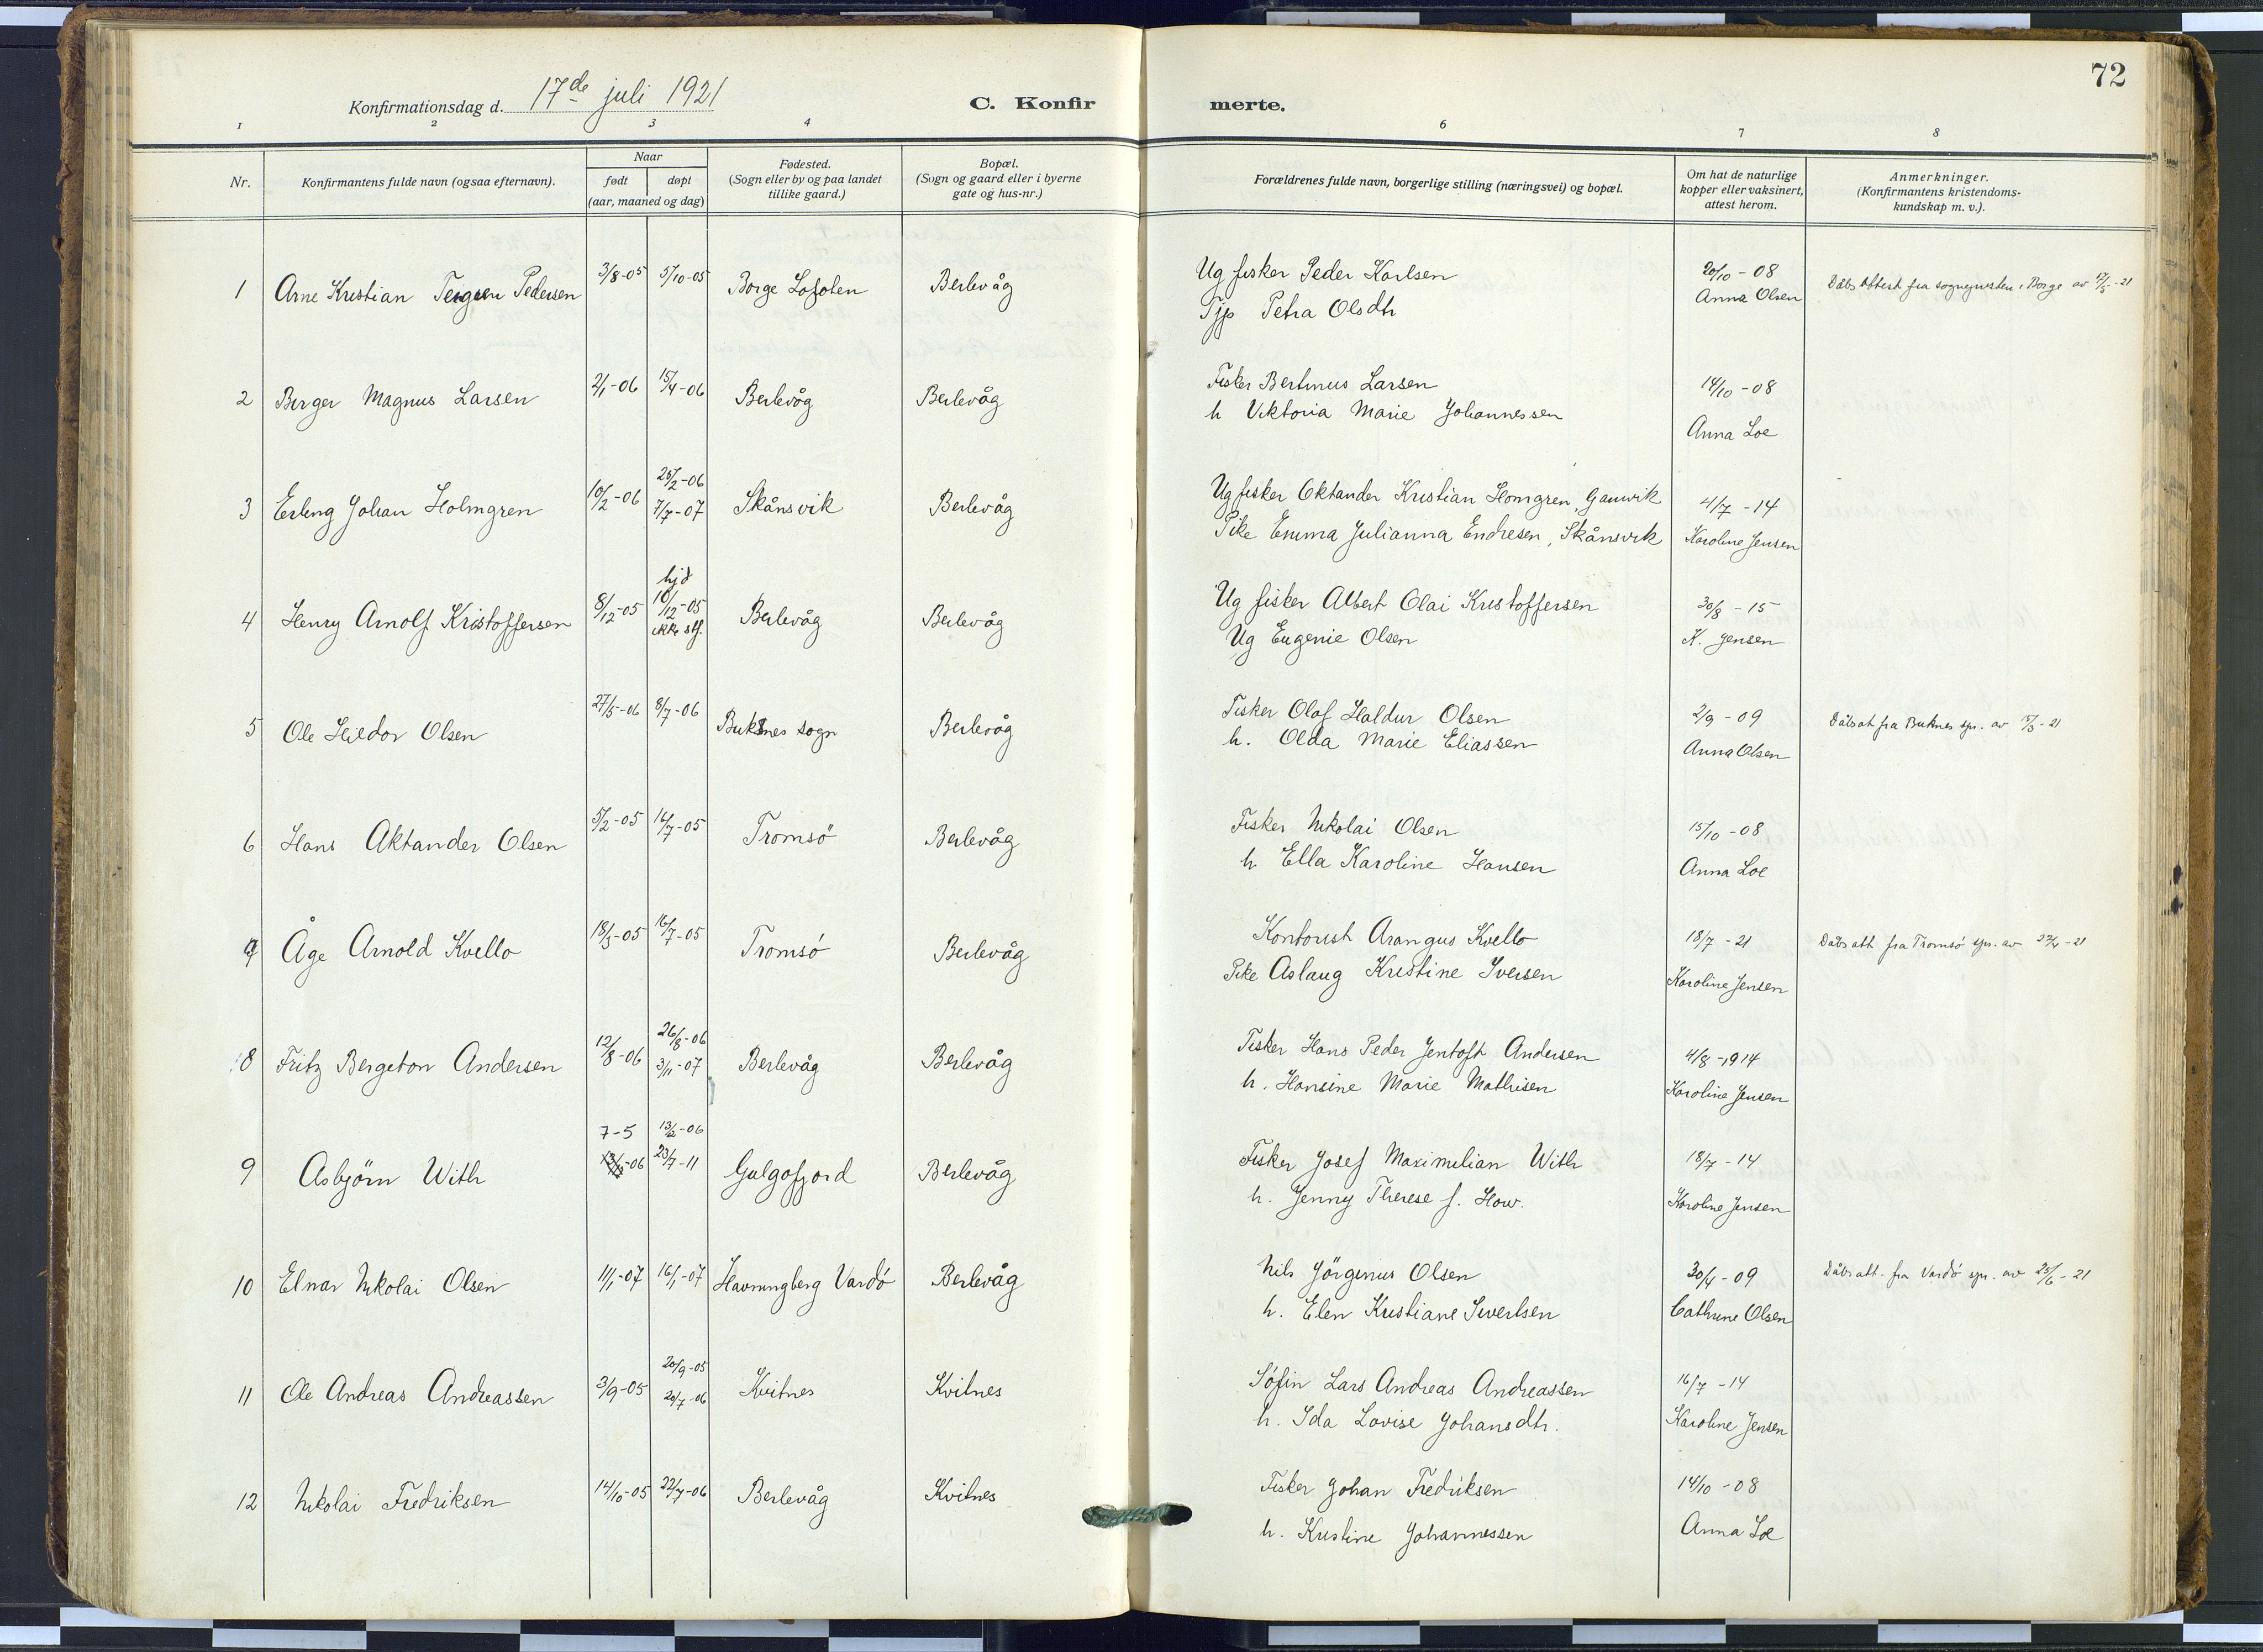 72
Konfirmationsdag d. 17de juli 1921
C. Konfir merte.
1 2 3 4 6 7 8
Nr.
Konfirmantens fulde navn (ogsaa efternavn).
Naar
født døpt
(aar, maaned og dag)
Fødested.
(Sogn eller by og paa landet
tillike gaard.)
Bopæl.
(Sogn og gaard eller i byerne
gate og hus-nr.)
Forældrenes fulde navn, borgerlige stilling (næringsvei) og bopæl.
Om hat de naturlige
kopper eller vaksinert,
attest herom.
Anmerkninger.
(Konfirmantens kristendoms-
kundskap m. v.).
1 Arne Kristian Teigren Pedersen 3/8-05 5/10-05 Borge Lofoten Berlevåg
Ug fisker Peder Karlsen
Tjp Petra Olsdtr
20/10-08
Anna Olsen
Dåbsattest fra sogneprsten i Borge av 12/5-21
2 Birger Magnus Larsen 2/1-06 15/4-06 Berlevåg Berlevåg
Fisker Bertinus Larsen
h Viktoria Marie Johannessen
14/10-08
Anna Loe
3 Erling Johan Holmgren 10/2-06 25/2-06 7/7-07 Skånsvik Berlevåg
Ug fisker Oktander Kristian Homgren, Gamvik
Pike Emma Julianna Endresen, Skånsvik
4/7-14
Karoline Jensen
4 Henry Arnolf Kristoffersen 8/12-05 hjd 10/12-05 ikke stf. Berlevåg Berlevåg
Ug fisker Albert Olai Kristoffersen
Ug Eugenie Olsen
30/8-15
K. Jensen
5 Ole Heldor Olsen 27/5-06 8/7-06 Buksnes sogn Berlevåg
Fisker Olaf Haldur Olsen
h. Olda Marie Eliassen
2/9-09
Anna Olsen
Dåbsat fra Buknes spr. av -21
6 Hans Aktander Olsen 5/2-05 16/7-05 Tromsö Berlevåg
Fisker Nikolai Olsen
h Ella Karoline Hansen
15/10-08
Anna Loe
7 Åge Arnold Kvello 18/3-05 16/7-05 Tromsó Berlevåg
Kontorist Arangus Kvello
Pike Aslaug Kristine Iversen
18/7-21
Karoline Jensen
Dåbsatt fra Tromsó spr. av 22/4-21
8 Fritz Bergeton Andersen 12/8-06 26/8-06 3/11-07 Berlevåg Berlevåg
Fisker Hans Peder Jentoft Andersen
h. Hansine Marie Mathisen
4/8-1914
Karoline Jensen
9 Asbjörn With 7-5 -06 13/2-06 23/7-11 Gulgofjord Berlevåg
Fisker Josef Maximilian With
h. Jenny Therese f. How.
18/7-14
Karoline Jensen
10 Elnar Nikolai Olsen 11/1-07 16/1-07 Havningberg Vardó Berlevåg
Nils Jörginus Olsen
h. Elen Kristiane Sivertsen
30/4-09
Cathrine Olsen
Dåbsatt. fra Vardó spr. av 25/6-21
11 Ole Andreas Andreassen 3/9-05 20/9-05 20/7-06 Kvitnes Kvitnes
Söfin Lars Andreas Andreassen
h. Ida Lovise Johansdtr.
16/7-14
Karoline Jensen
12 Nikolai Fredriksen 14/10-05 22/7-06 Berlevåg Kvitnes
Fisker Johan Fredriksen
h. Kristine Johannessen
14/10-08
Anna Loe